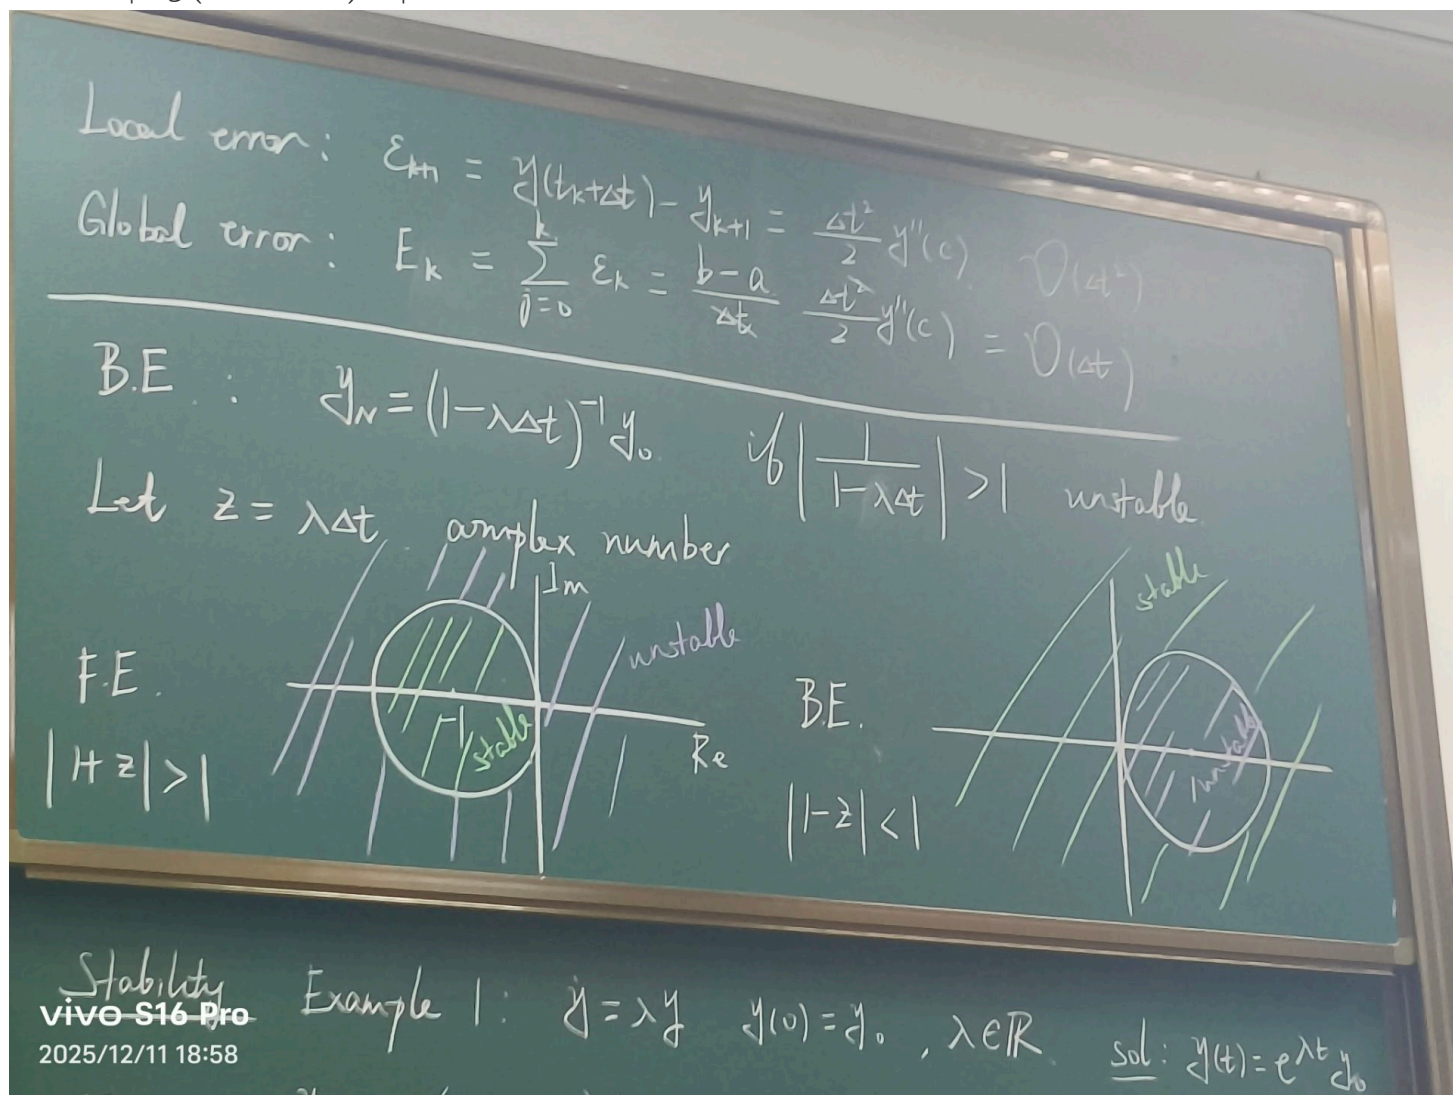 Local error: ε_{k+1} = y(t_k+Δt) - y_{k+1} = Δt²/2 y''(c). O(Δt²)
Global error: E_k = Σ_{j=0}^{k} ε_k = (b-a)/Δt Δt²/2 y''(c) = O(Δt)
B.E : y_N = (1-λΔt)^{-1} y_0 if |1/(1-λΔt)| > 1 unstable.
Let z = λΔt complex number
Im
stable
unstable
F.E.
-1
stable
Re
B.E.
unstable
|1+z|>1
|1-z|<1
Stability Example 1: ẏ = λy y(0) = y_0, λ∈ℝ sol: y(t) = e^{λt} y_0
vivo S16 Pro
2025/12/11 18:58